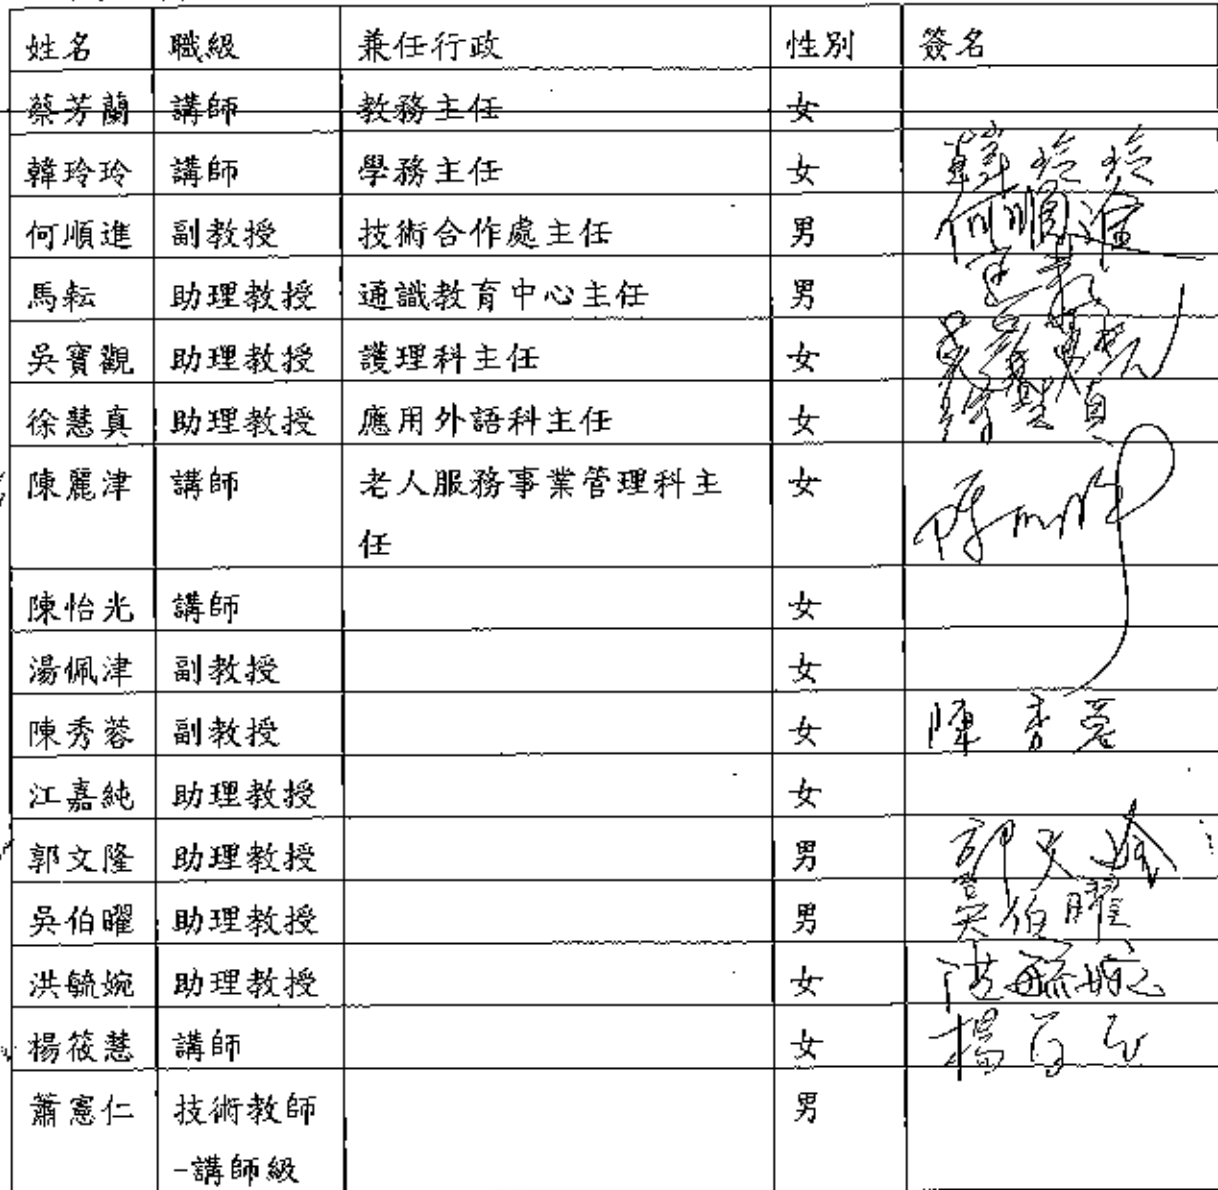 姓名 職級 兼任行政 性別 簽名
蔡芳蘭 講師 教務主任 女
韓玲玲 講師 學務主任 女 韓玲玲
何順進 副教授 技術合作處主任 男 何順進
馬耘 助理教授 通識教育中心主任 男
吳寶觀 助理教授 護理科主任 女
徐慧真 助理教授 應用外語科主任 女
陳麗津 講師 老人服務事業管理科主
任 女
陳怡光 講師 女
湯佩津 副教授 女
陳秀蓉 副教授 女 陳秀蓉
江嘉純 助理教授 女
郭文隆 助理教授 男 郭文隆
吳伯曜 助理教授 男 吳伯曜
洪毓婉 助理教授 女 洪毓婉
楊筱慧 講師 女
蕭憲仁 技術教師 男
-講師級